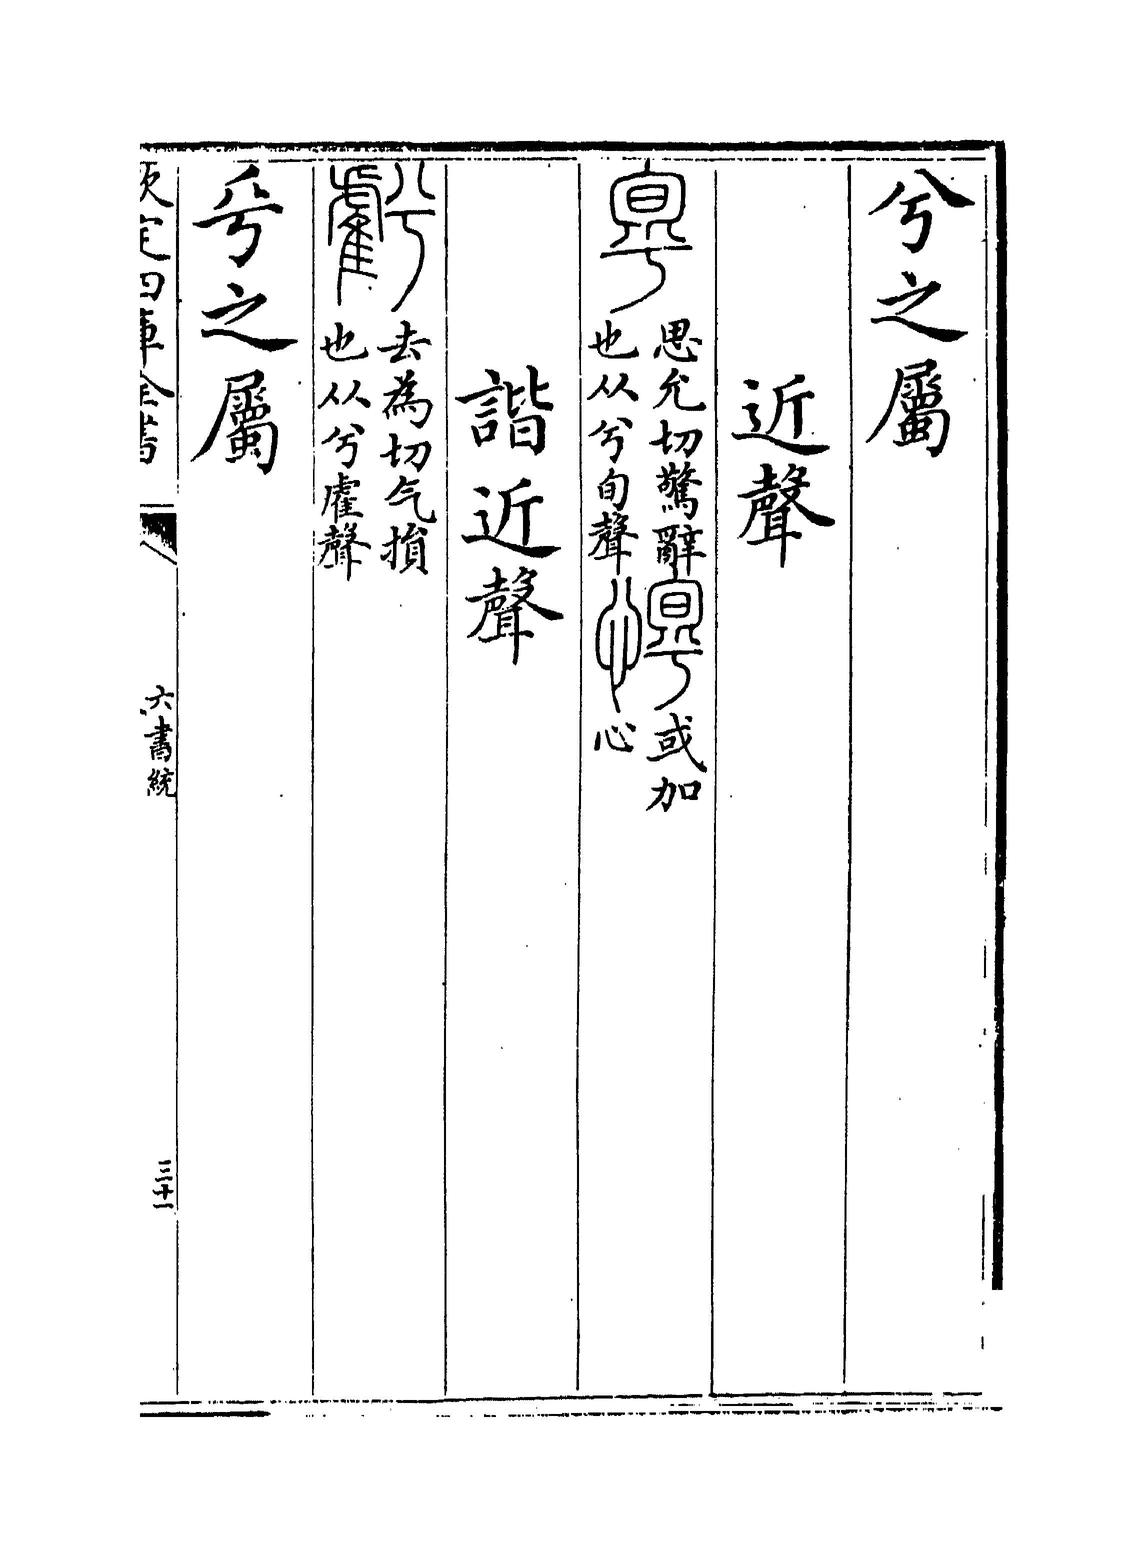 兮之屬
近聲
思允切驚辭
也从兮旬聲
或加
心
諧近聲
去為切气損
也从兮雐聲
乎之屬
欽定四庫全書
六書統
三十一